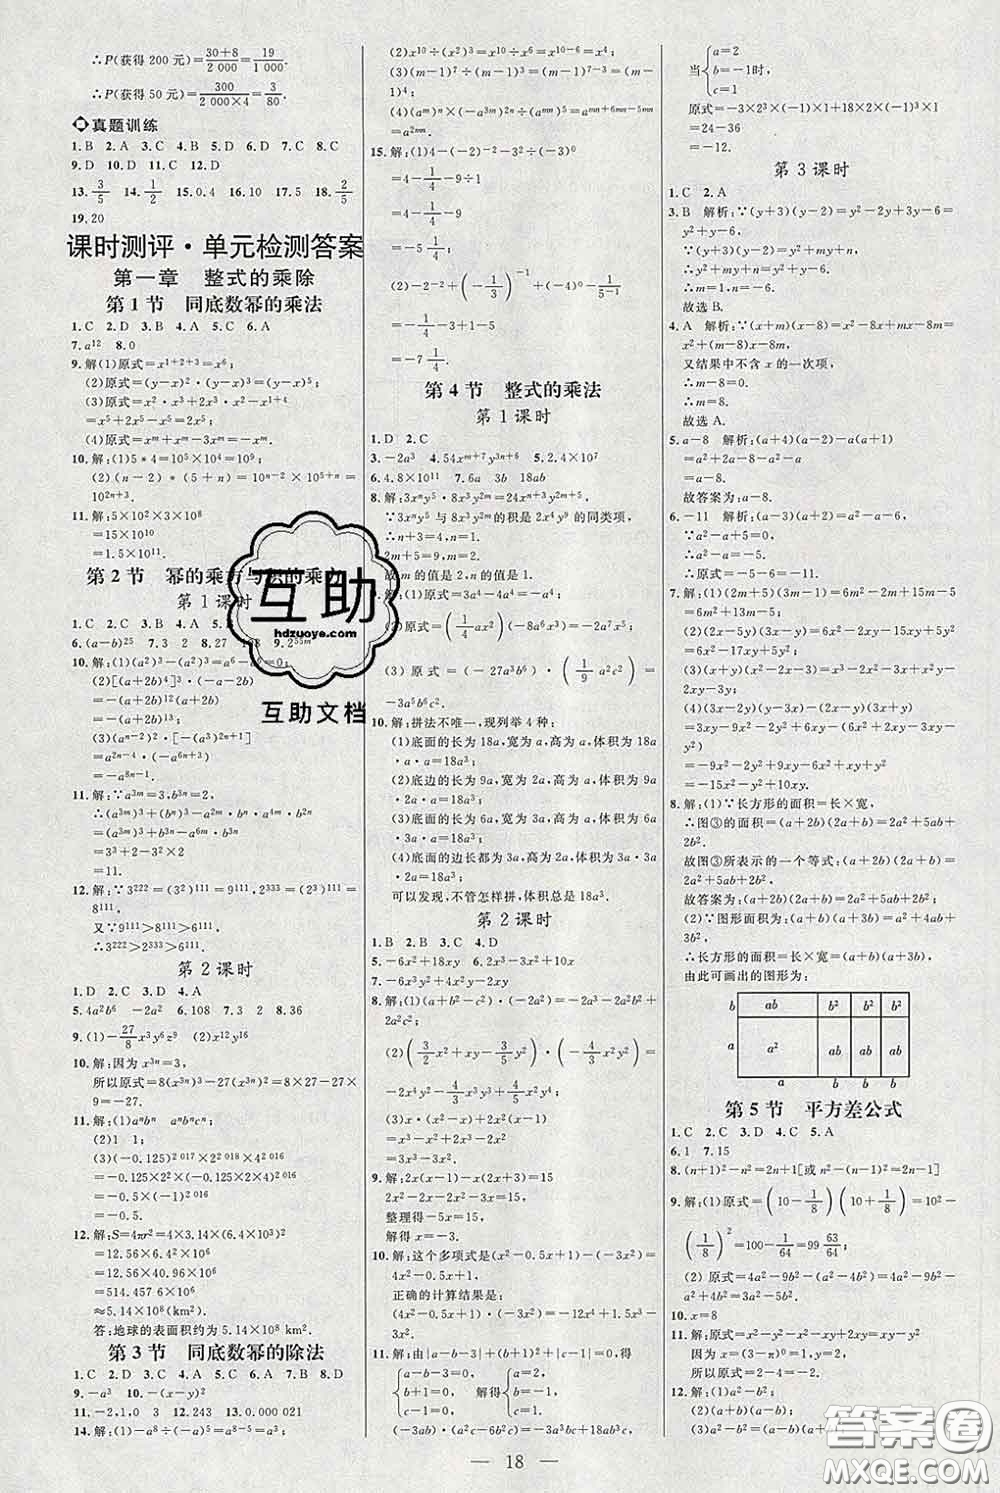 ∴P(获得 200 元)=30+8/2 000=19/1 000.
∴P(获得 50 元)=300/2 000×4=3/80.
真题训练
1.B 2.A 3.C 4.C 5.C 6.D 7.C 8.C
9.D 10.D 11.C 12.D
13.3/5 14.1/2 15.0.4 16.10 17.25 18.2/5
19.20
课时测评·单元检测答案
第一章 整式的乘除
第 1 节 同底数幂的乘法
1.C 2.D 3.B 4.A 5.C 6.A
7.a¹² 8.0
9.解(1)原式=x¹⁺²⁺³=x⁶;
(2)原式=(y-x)²·(y-x)³=(y-x)⁵;
(3)原式=x²·x³+2x³·x²-2x·x⁴
=x⁵+2x⁵-2x⁵=x⁵.
(4)原式=xᵐ+xᵐ-3xᵐ=-xᵐ.
10.解:(1)5*4=10⁵×10⁴=10⁹;
(2)(n-2)*(5+n)=10ⁿ⁻²×10⁵⁺ⁿ=
10²ⁿ⁺³.
11.解:5×10²×3×10⁸
=15×10¹⁰
=1.5×10¹¹.
第 2 节 幂的乘方与积的乘方
第 1 课时
1.C 2.C 3.B
6.(a-b)²⁵ 7.3 2 8.
10.解:(1)(a²)³-(a³)²=a⁶-a⁶=0;
(2)[(a+2b)⁴]³·(-a-2b)
=-(a+2b)¹²(a+2b)
=-(a+2b)¹³;
(3)(aⁿ⁻²)²·[-(a³)²ⁿ⁺¹]
=a²ⁿ⁻⁴·(-a⁶ⁿ⁺³)
=-a⁸ⁿ⁻¹.
11.解:∵a³ᵐ=3,b³ⁿ=2,
∴(a³ᵐ)³+(bⁿ)³-a⁶ᵐ·b⁶ⁿ
=(a³ᵐ)²+b³ⁿ-(a³ᵐ)²·(b³ⁿ)²
=3²+2-3²×2²
=11.
12.解:∵3²²²=(3²)¹¹¹=9¹¹¹,2³³³=(2³)¹¹¹=
8¹¹¹,
又∵9¹¹¹>8¹¹¹,
∴3²²²>2³³³.
第 2 课时
1.D 2.C 3.D 4.A
5.4a⁶b² -2a² 6.108 7.3 2 8.36
9.(1)-27/8x³y⁶z⁹ (2)x¹²y¹⁶
10.解:因为 x³ⁿ=3,
所以原式=8(x³ⁿ)³-27(x³ⁿ)²=8×27-27×
9=-27.
11.解:(1)aⁿbⁿ aⁿbⁿcⁿ;
(2)1 1;
(3)(-0.125)²⁰¹⁷×2²⁰¹⁸×4²⁰¹⁶
=-0.125×2²×(-0.125×2×4)²⁰¹⁶
=-0.125×2²×(-1)²⁰¹⁶
=-0.5.
12.解:S=4πr²=4×3.14×(6.4×10³)²
=12.56×(6.4×10³)²
=12.56×40.96×10⁶
=514.457 6×10⁶
≈5.14×10⁸(km²).
答:地球的表面积约为 5.14×10⁸ km².
第 3 节 同底数幂的除法
1.C 2.A 3.C 4.C 5.B 6.A 7.D 8.D
9.-a³ 10.-(x-y)²
11.-2,1,0 3 12.243 13.0.000 021
14.解:(1)-a⁷÷(-a)⁵=a⁷÷a⁵=a²;
(2)x¹⁰÷(x²)³=x¹⁰÷x⁶=x¹⁰⁻⁶=x⁴;
(3)(m-1)⁷÷(m-1)³=(m-1)⁷⁻³=(m-
1)⁴;
(4)(aᵐ)ⁿ×(-a³ᵐ)²ⁿ÷(aᵐⁿ)⁵=aᵐⁿ⁺⁶ᵐⁿ⁻⁵ᵐⁿ
=a²ᵐⁿ.
15.解:(1)4-(-2)⁻²-3²÷(-3)⁰
=4-1/4-9÷1
=4-1/4-9
=-5 1/4;
(2)-2⁻²+(-1/3)⁻¹+(-3)²-1/5⁻¹
=-1/4-3+9-5...
=-1/4-3+1...
第 4 节 整式的乘法
第 1 课时
1.D 2.C
3.-2a³ 4.54xᵐ⁺⁴y³ⁿ⁺⁶ 5.2.4×10⁷
6.4.8×10¹¹ 7.6a 3b 18ab
8.解:3xⁿy⁵·8x³y²ᵐ=24xⁿ⁺³y²ᵐ⁺⁵,
∵3xⁿy⁵ 与 8x³y²ᵐ的积是 2x⁴y⁹的同类项,
∴n+3=4,2m+5=9,
∴n=1,m=2,
故 m 的值是 2,n 的值是 1.
9.解:(1)原式=3a⁴-4a⁴=-a⁴;
(2)原式=(1/4ax²)(-8a⁶x³)=-2a⁷x⁵;
(3)原式=(-27a³b⁶)·(1/9a²c²)=
-3a⁵b⁶c².
10.解:拼法不唯一,现列举 4 种:
(1)底面的长为 18a,宽为 a,高为 a,体积为 18a
·a·a=18a³;
(2)底边的长为 9a,宽为 2a,高为 a,体积为 9a
·2a·a=18a³;
(3)底面的长为 6a,宽为 3a,高为 a,体积为 6a
·3a·a=18a³;
(4)底面的长都为 3a,高为 2a,体积为 3a·3a·
2a=18a³.
可以发现,不管怎样拼,体积总是 18a³.
第 2 课时
1.B 2.B 3.C 4.D
5.-6x²+18xy 6.2x³-3x²+10x
7.-6x³y²+4x²y-2xy
8.解:(1)(a+b²-c²)·(-2a²)=-2a³-2a²b²+
2a²c²;
(2)(3/2x²+xy-3/5y²)·(-4/3x²y²)=
-2x⁴y²-4/3x³y³+4/5x²y⁴;
(3)x·(x²+3)+x²(x-3)-3x(x²-x-1)
=x³+3x+x³-3x²-3x³+3x²+3x
=-x³+6x.
9.解:2x(x-1)-x(2x+3)=15
2x²-2x-2x²-3x=15,
整理得-5x=15,
解得 x=-3.
10.解:这个多项式是(x²-0.5x+1)-(-3x²)=
4x²-0.5x+1,
正确的计算结果是:
(4x²-0.5x+1)·(-3x²)=-12x⁴+1.5x³-
3x².
11.解:由|a-b-3|+(b+1)²+|c-1|=0,得
a-b-3=0 a=2
b+1=0 解得 b=-1,
c-1=0 c=1
(-3ab)·(a²c-6b²c)=-3a³bc+18ab³c,
a=2
当 b=-1时,
c=1
原式=-3×2³×(-1)×1+18×2×(-1)³×1
=24-36
=-12.
第 3 课时
1.C 2.A
3.B 解析:∵(y+3)(y-2)=y²-2y+3y-6=
y²+y-6,
∵(y+3)(y-2)=y²+my+n,
∴y²+my+n=y²+y-6,
∴m=1,n=-6.
故选 B.
4.A 解析:∵(x+m)(x-8)=x²-8x+mx-8m=
x²+(m-8)x-8m,
又结果中不含 x 的一次项,
∴m-8=0.
∴m=8.
故选 A.
5.a-8 解析:(a+4)(a-2)-a(a+1)
=a²+2a-8-a²-a
=a-8.
故答案为:a-8.
6.-11 解析:∵a²-a+5=0,
∴a²-a=-5,
∴原式=a²-a-6=-5-6=-11.
7.解:(1)(2m+5)(3m-1)=6m²-2m+15m-5=
6m²+13m-5;
(2)(2x-5y)(3x-y)=6x²-2xy-15xy+5y²
=6x²-17xy+5y²;
(3)(x+y)(x²-2x-3)=x³-2x²-3x+x²y-
2xy-3y;
(4)-3x(3x+2y)-(2x-3y)(3x+4y)
8.解:(1)∵长方形的面积=长×宽,
∴图③的面积=(a+2b)(2a+b)=2a²+5ab+
2b².
故图③所表示的一个等式:(a+2b)(2a+b)=
2a²+5ab+2b²,
故答案为:(a+2b)(2a+b)=2a²+5ab+2b²;
(2)∵图形面积为:(a+b)(a+3b)=a²+4ab+
3b²,
∴长方形的面积=长×宽=(a+b)(a+3b),
由此可画出的图形为:
b ab b² b² b²
a a² ab ab ab
a b b b
第 5 节 平方差公式
1.C 2.C 3.D 4.C 5.A
6.1 7.15
8.(n+1)²-n²=2n+1[或 n²-(n-1)²=2n-1]
9.解:(1)原式=(10-1/8)(10+1/8)=10²-
(1/8)²=100-1/64=99 63/64;
10.x=8
互助
hdzuoye.com
互助文档
答案圈
MXQE.COM
— 18 —